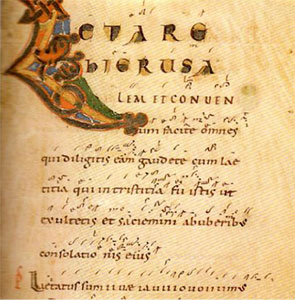 LETARE
HIERUSA
LEM ET CONVEN
tum facite omnes
qui diligitis eam gaudete cum lae
titia qui in tristitia fu istis ut
exultetis et saciemini abuberibus
consolatio nis eius
Laetatus sum